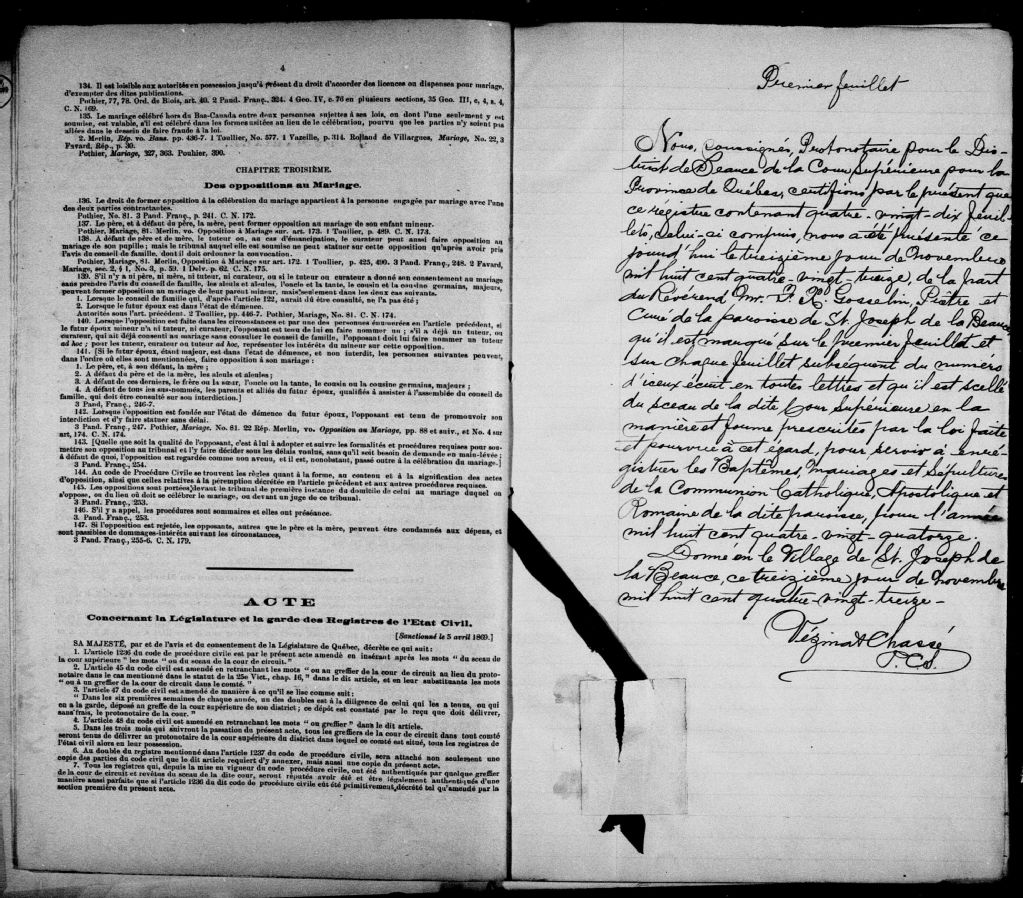 4
134. Il est loisible aux autorités en possession jusqu'à présent du droit d'accorder des licences ou dispenses pour mariage,
d'exempter des dites publications.
Pothier, 77, 78. Ord. de Blois, art. 40. 2 Pand. Franç., 324. 4 Geo. IV, c. 76 en plusieurs sections, 35 Geo. III, c, 4, s. 4,
C. N. 169.
135. Le mariage célébré hors du Bas-Canada entre deux personnes sujettes à ses lois, ou dont l'une seulement y est
soumise, est valable, s'il est célébré dans les formes usitées au lieu de la célébration, pourvu que les parties n'y soient pas
allées dans le dessein de faire fraude à la loi.
2. Merlin, Rép. vo. Bans. pp. 436-7. 1 Toullier, No. 577. 1 Vazeille, p. 314. Rolland de Villargues, Mariage, No. 22, 3
Favard, Rép., p. 30.
Pothier, Mariage, 327, 363. Pouhier, 390.
CHAPITRE TROISIÈME.
Des oppositions au Mariage.
136. Le droit de former opposition à la célébration du mariage appartient à la personne engagée par mariage avec l'une
des deux parties contractantes.
Pothier, No. 81. 3 Pand. Franç., p. 241. C. N. 172.
137. Le père, et à défaut du père, la mère, peut former opposition au mariage de son enfant mineur.
Pothier, Mariage, 81. Merlin. vo. Opposition à Mariage sur. art. 173. 1 Toullier, p. 489. C. N. 173.
138. A défaut de père et de mère, le tuteur ou, au cas d'émancipation, le curateur peut aussi faire opposition au
mariage de son pupille; mais le tribunal auquel elle est soumise ne peut statuer sur cette opposition qu'après avoir pris
l'avis du conseil de famille, dont il doit ordonner la convocation.
Pothier, Mariage, 81. Merlin, Opposition à Mariage sur art. 172. 1 Toullier, p. 425, 490. 3 Pand. Franç., 248. 2 Favard,
Mariage, sec. 2, § 1, No. 3, p. 59. 1 Delv. p. 62. C. N. 175.
139. S'il n'y a ni père, ni mère, ni tuteur, ni curateur, ou si le tuteur ou curateur a donné son consentement au mariage
sans prendre l'avis du conseil de famille, les aïeuls et aïeules, l'oncle et la tante, le cousin et la cousine germains, majeurs,
peuvent former opposition au mariage de leur parent mineur, mais seulement dans les deux cas suivants.
1. Lorsque le conseil de famille qui, d'après l'article 122, aurait dû être consulté, ne l'a pas été;
2. Lorsque le futur époux est dans l'état de démence.
Autorités sous l'art. précédent. 2 Toullier, pp. 446-7. Pothier, Mariage, No. 81. C. N. 174.
140. Lorsque l'opposition est faite dans la circonstances et par une des personnes énumérées en l'article précédent, si
le futur époux mineur n'a ni tuteur, ni curateur, l'opposant est tenu de lui en faire nommer un; s'il a déjà un tuteur, ou
curateur, qui ait déjà consenti au mariage sans consulter le conseil de famille, l'opposant doit lui faire nommer un tuteur
ad hoc; pour les tuteur, curateur ou tuteur ad hoc, représenter les intérêts du mineur sur cette opposition.
141. [Si le futur époux, étant majeur, est dans l'état de démence, et non interdit, les personnes suivantes peuvent,
dans l'ordre où elles sont mentionnées, faire opposition à son mariage:
1. Le père, et, à son défaut, la mère;
2. A défaut du père et de la mère, les aïeuls et aïeules;
3. A défaut de ces derniers, le frère ou la sœur, l'oncle ou la tante, le cousin ou la cousine germains, majeurs;
4. A défaut de tous les sus-nommés, les parents et alliés du futur époux, qualifiés à assister à l'assemblée du conseil de
famille, qui doit être consulté sur son interdiction.]
3 Pand. Franç., 246-7.
142. Lorsque l'opposition est fondée sur l'état de démence du futur époux, l'opposant est tenu de promouvoir son
interdiction et d'y faire statuer sans délai.
3 Pand. Franç., 247. Pothier, Mariage. No. 81. 22 Rép. Merlin, vo. Opposition au Mariage, pp. 88 et suiv., et No. 4 sur
art, 174. C. N. 174.
143. [Quelle que soit la qualité de l'opposant, c'est à lui à adopter et suivre les formalités et procédures requises pour sou-
mettre son opposition au tribunal et l'y faire décider sous les délais voulus, sans qu'il soit besoin de demande en main-levée;
à défaut de quoi, l'opposition est regardée comme non avenu, et il est, nonobstant, passé outre à la célébration du mariage.]
3 Pand. Franç., 254.
144. Au code de Procédure Civile se trouvent les règles quant à la forme, au contenu et à la signification des actes
d'opposition, ainsi que celles relatives à la péremption décrétée en l'article précédent et aux autres procédures requises.
145. Les oppositions sont portées devant le tribunal de première instance du domicile de celui au mariage duquel on
s'oppose, ou du lieu où doit se célébrer le mariage, ou devant un juge de ce tribunal.
3 Pand. Franç., 253.
146. S'il y a appel, les procédures sont sommaires et elles ont préséance.
3. Pand. Franç., 253.
147. Si l'opposition est rejetée, les opposants, autres que le père et la mère, peuvent être condamnés aux dépens, et
sont passibles de dommages-intérêts suivant les circonstances,
3 Pand. Franç., 255-6. C. N. 179.
ACTE
Concernant la Législature et la garde des Registres de l'Etat Civil.
[Sanctionné le 5 avril 1869.]
SA MAJESTÉ, par et de l'avis et du consentement de la Législature de Québec, décrète ce qui suit:
1. L'article 1236 du code de procédure civile est par le présent acte amendé en insérant après les mots " du sceau de
la cour supérieure " les mots " ou du sceau de la cour de circuit."
2. L'article 45 du code civil est amendé en retranchant les mots " ou au greffier de la cour de circuit au lieu du proto-
notaire dans le cas mentionné dans le statut de la 25e Vict., chap. 16, " dans le dit article, et en leur substituants les mots
" ou à un greffier de la cour de circuit dans le comté. "
3. l'article 47 du code civil est amendé de manière à ce qu'il se lise comme suit:
" Dans les six premières semaines de chaque année, un des doubles est à la diligence de celui qui les a tenus, ou qui
en a la garde, déposé au greffe de la cour supérieure de son district; ce dépôt est constaté par le reçu que doit délivrer,
sans frais, le protonotaire de la cour."
4. L'article 48 du code civil est amendé en retranchant les mots " ou greffier" dans le dit article.
5. Dans les trois mois qui suivront la passation du présent acte, tous les greffiers de la cour de circuit dans tout comté
seront tenus de délivrer au protonotaire de la cour supérieure du district dans lequel ce comté est situé, tous les registres de
l'état civil alors en leur possession.
6. Au double du registre mentionné dans l'article 1237 du code de procédure civile, sera attaché non seulement une
copie des parties du code civil que le dit article requiert d'y annexer, mais aussi une copie du présent acte.
7. Tous les registres qui, depuis la mise en vigueur du code procédure civile, ont été authentiqués par quelque greffier
de la cour de circuit et revêtus du sceau de la dite cour, seront réputés avoir été et être légalement authentiqués d'une
manière aussi parfaite que si l'article 1236 du dit code de procédure civile eût été primitivement décrété tel qu'amendé par la
section première du présent acte.
Premier feuillet
Nous, soussignés, Protonotaire pour le Dis-
trict de Beauce de la Cour Supérieure pour la
Province de Québec, certifions par le présent que
ce régistre contenant quatre-vingt-dix feuil-
lets, celui-ci compris, nous a été présenté ce
jourd'hui le treizième jour de Novembre
mil huit cent quatre-vingt treize, de la part
du Revérend Mr. F. X. Gosselin, Prêtre et
Curé de la paroisse de St. Joseph de la Beauce,
qu'il est marqué sur le premier feuillet et
sur chaque feuillet subséquent du numéro
d'iceux écrit en toutes lettres et qu'il est scellé
du sceau de la dite Cour Supérieure en la
manière et forme prescrites par la loi faite
et pourvue à cet égard, pour servir à enré-
gistrer les Baptêmes, Mariages et Sépultures
de la Communion Catholique, Apostolique et
Romaine de la dite paroisse, pour l'année
mil huit cent quatre-vingt-quatorze.
Donné en le Village de St. Joseph de
la Beauce, ce treizième jour de Novembre
mil huit cent quatre-vingt-treize-
Vézina & Chassé
P. C. S.